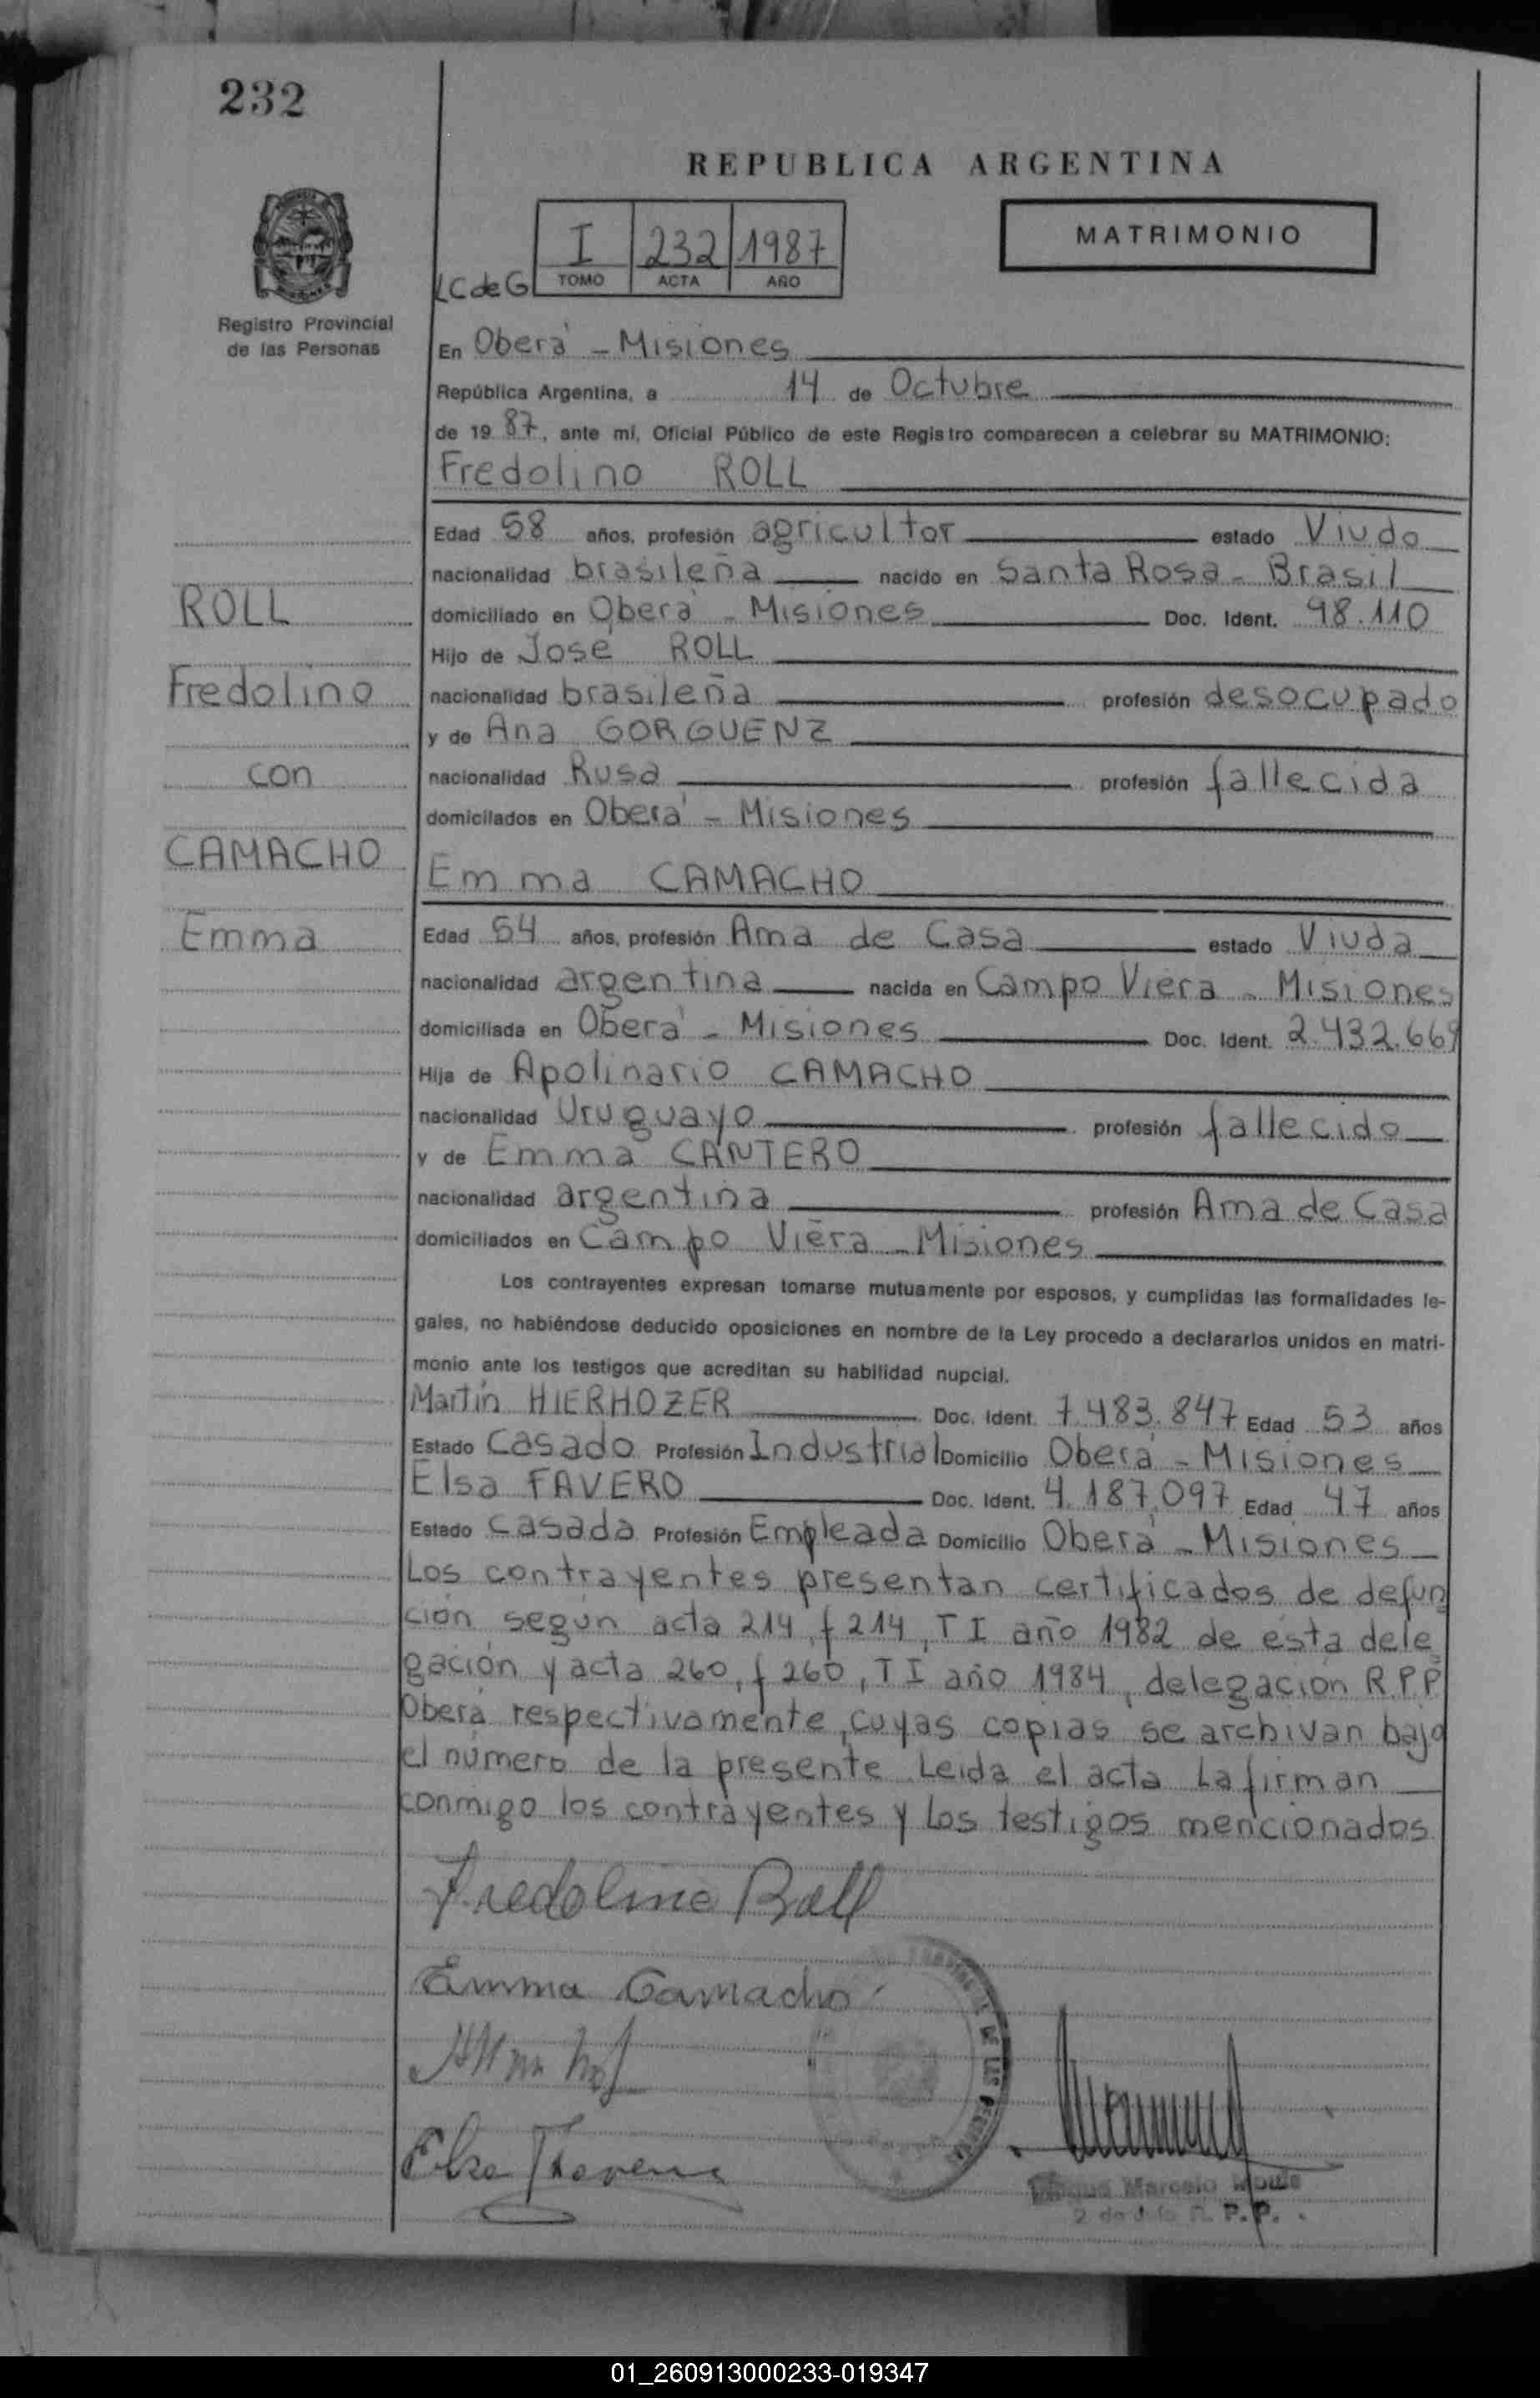 232
REPUBLICA ARGENTINA
I 232 1987
TOMO ACTA AÑO
MATRIMONIO
LC de G
Registro Provincial
de las Personas
En Oberá - Misiones
República Argentina, a 14 de Octubre
de 19 87, ante mí, Oficial Público de este Registro comparecen a celebrar su MATRIMONIO:
Fredolino ROLL
Edad 58 años, profesión agricultor estado Viudo
nacionalidad brasileña nacido en Santa Rosa - Brasil
ROLL
domiciliado en Oberá - Misiones Doc. Ident. 98.110
Hijo de José ROLL
Fredolino
nacionalidad brasileña profesión desocupado
y de Ana GORGUENZ
con
nacionalidad Rusa profesión fallecida
domicilados en Oberá - Misiones
CAMACHO
Emma CAMACHO
Emma
Edad 54 años, profesión Ama de Casa estado Viuda
nacionalidad argentina nacida en Campo Viera - Misiones
domiciliada en Oberá - Misiones Doc. Ident. 2.432.669
Hija de Apolinario CAMACHO
nacionalidad Uruguayo profesión fallecido
y de Emma CANTERO
nacionalidad argentina profesión Ama de Casa
domiciliados en Campo Viera - Misiones
Los contrayentes expresan tomarse mutuamente por esposos, y cumplidas las formalidades le-
gales, no habiéndose deducido oposiciones en nombre de la Ley procedo a declararlos unidos en matri-
monio ante los testigos que acreditan su habilidad nupcial.
Martín HIERHOZER Doc. Ident. 7.483.847 Edad 53 años
Estado Casado Profesión Industrial Domicilio Oberá - Misiones
Elsa FAVERO Doc. Ident. 4.187.097 Edad 47 años
Estado Casada Profesión Empleada Domicilio Oberá - Misiones
Los contrayentes presentan certificados de defun
ción según acta 214, f 214, T I año 1982 de ésta dele
gación y acta 260, f 260, T I año 1984, delegación R.P.P
Oberá respectivamente, cuyas copias se archivan bajo
el número de la presente. Leida el acta La firman
conmigo los contrayentes y los testigos mencionados
Fredolino Roll
Emma Camacho
Elsa
Marcelo
R.P.P.
01_260913000233-019347